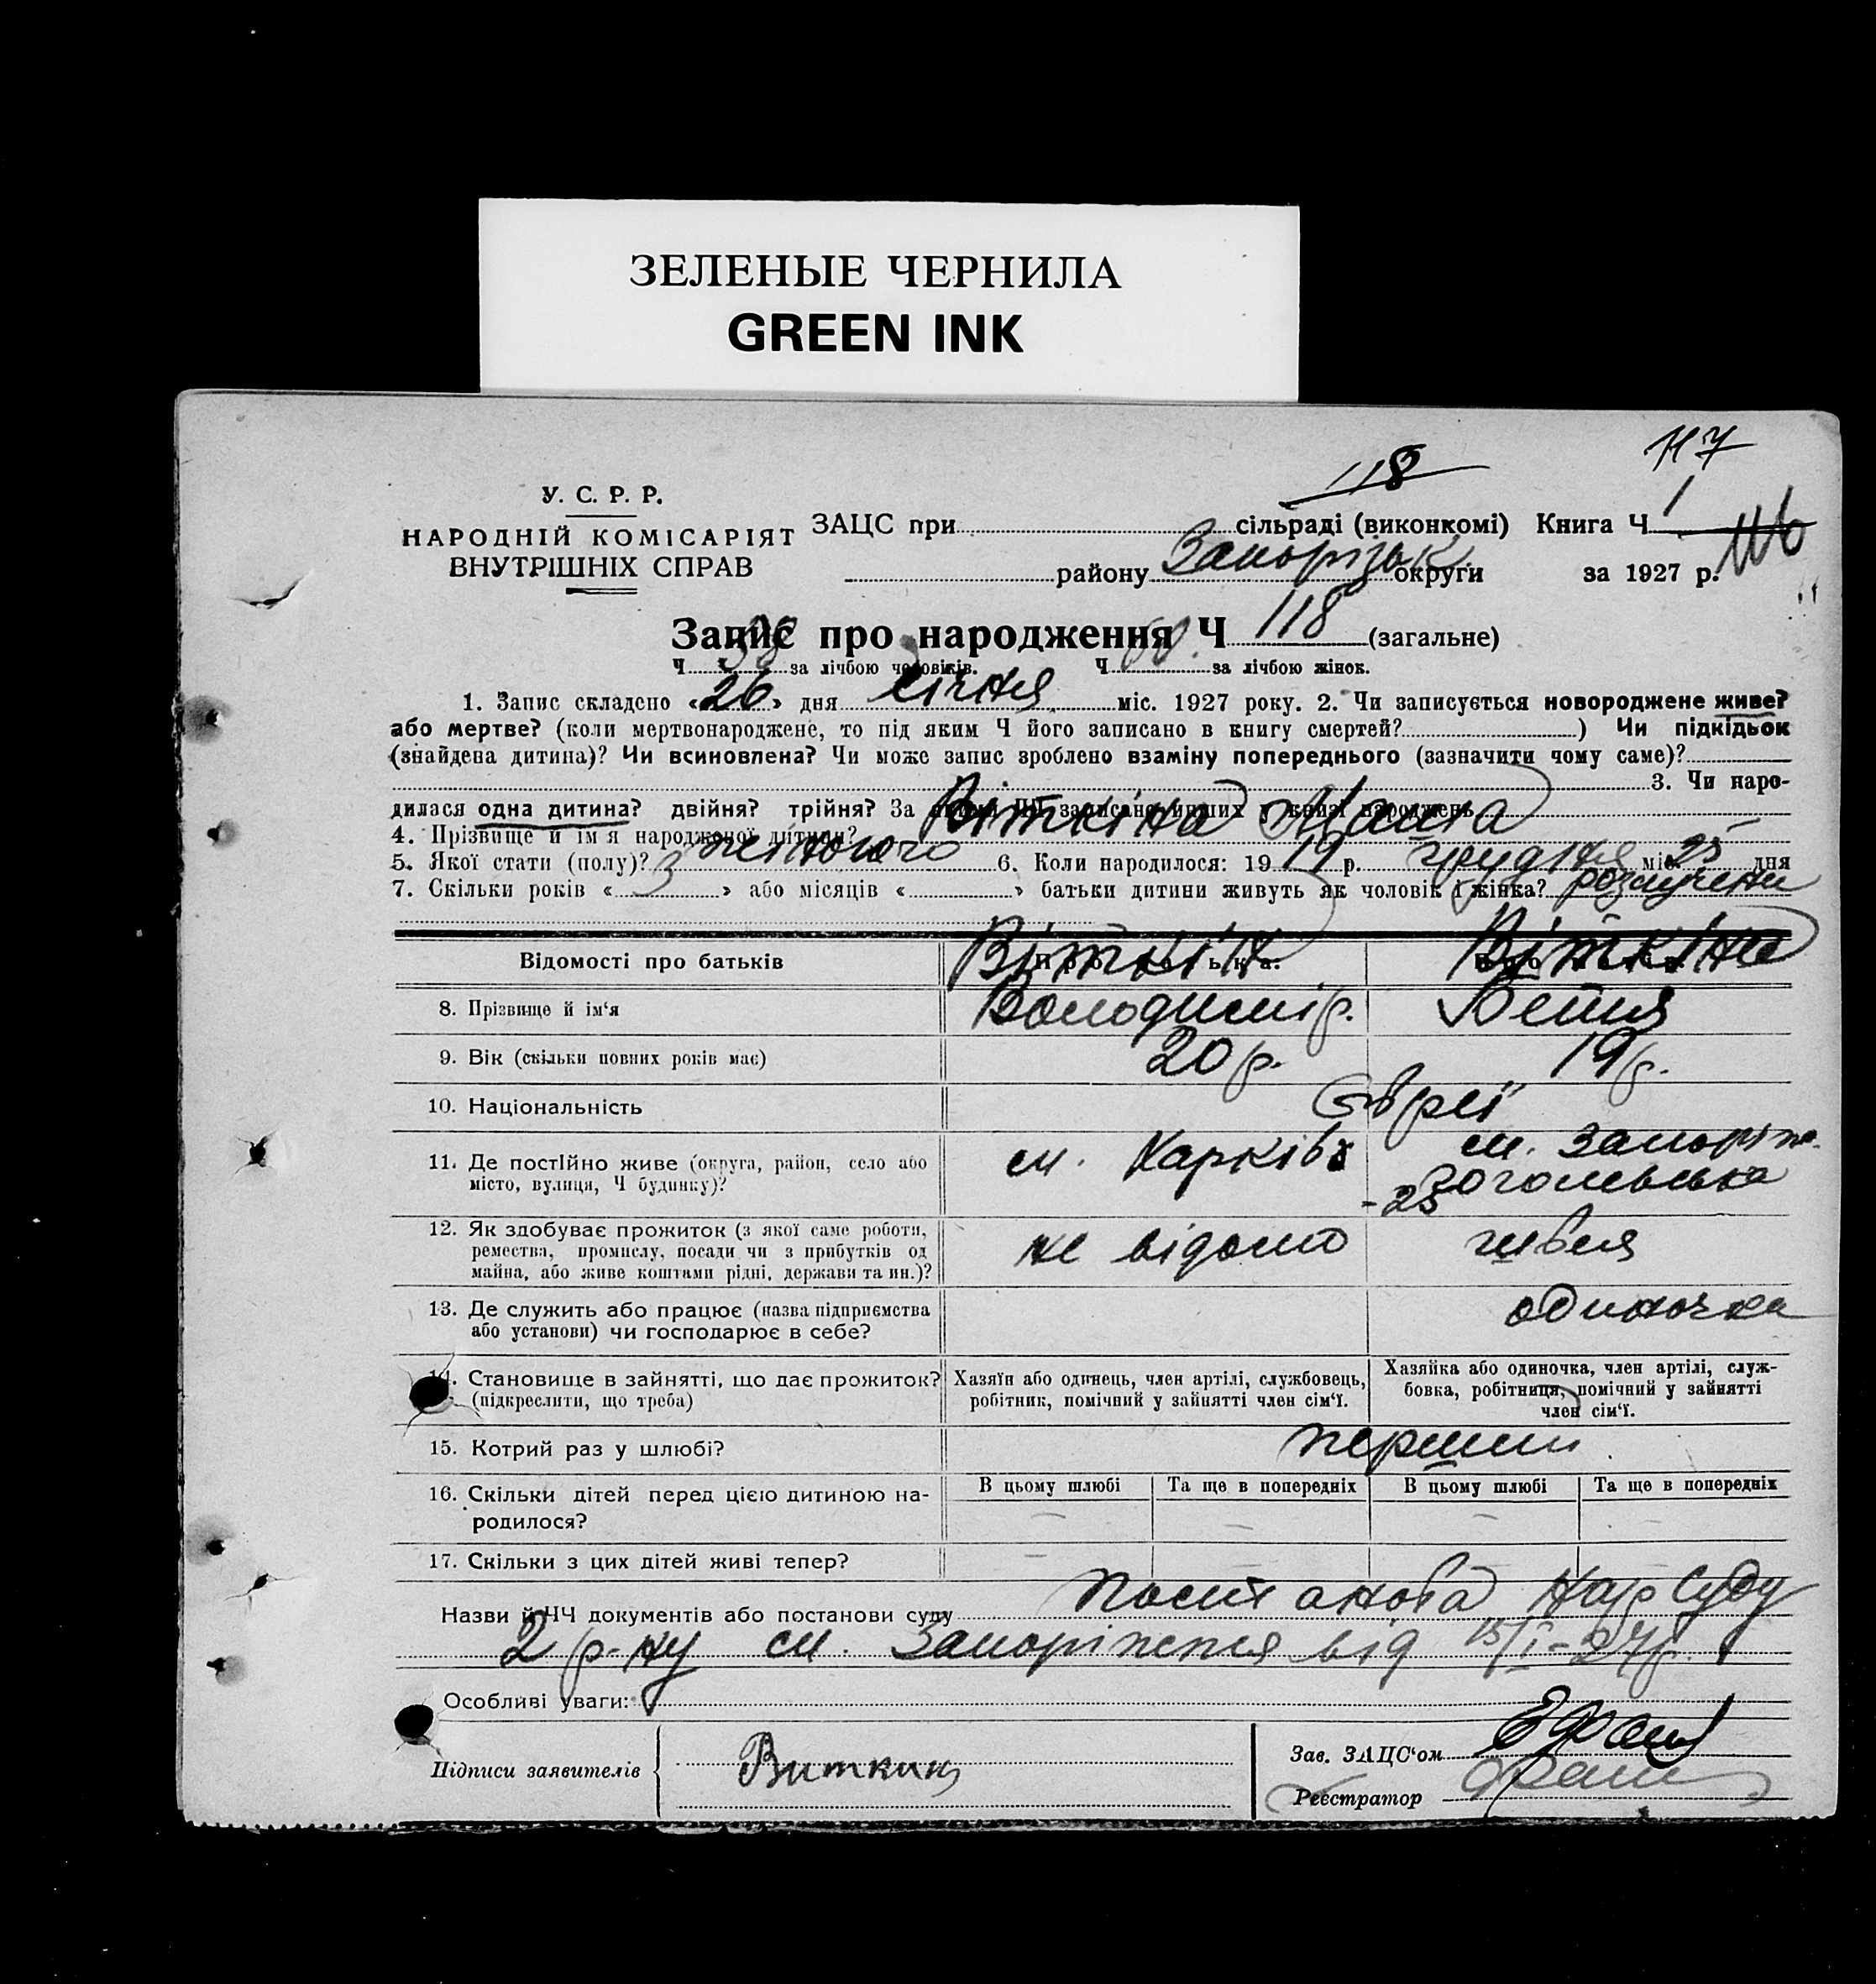 ЗЕЛЕНЫЕ ЧЕРНИЛА
GREEN INK
117
118
У. С. Р. Р.
НАРОДНІЙ КОМІСАРІЯТ
ВНУТРІШНІХ СПРАВ
ЗАЦС при сільраді (виконкомі) Книга Ч 1 116
району Запорізьк. округи за 1927 р.
Запис про народження Ч 118 (загальне)
Ч 58 за лічбою чоловіків. Ч 60 за лічбою жінок.
1. Запис складено «26» дня січня міс. 1927 року. 2. Чи записується новороджене живе?
або мертве? (коли мертвонароджене, то під яким Ч його записано в книгу смертей? ) Чи підкідьок
(знайдена дитина)? Чи всиновлена? Чи може запис зроблено взаміну попереднього (зазначити чому саме)?
3. Чи наро-
дилася одна дитина? двійня? трійня? За ЧЧ записано инших у книзі народжень
4. Прізвище й ім'я народженої дитини? Віткіна
5. Якої стати (полу)? жіночого 6. Коли народилося: 19 19 р. грудня міс. 25 дня
7. Скільки років « 3 » або місяців « » батьки дитини живуть як чоловік і жінка? розлучени
Відомості про батьків
Віткін Віткіна
8. Прізвище й ім‘я Володимір. Бейля
9. Вік (скільки повних років має) 20 р. 19 р.
10. Національність Євреї
11. Де постійно живе (округа, район, село або м. Харків м. Запоріж.
місто, вулиця, Ч будинку)? Гоголевська
- 25
12. Як здобуває прожиток (з якої саме роботи, не відомо швея
ремества, промислу, посади чи з прибутків од
майна, або живе коштами рідні, держави та ин.)?
13. Де служить або працює (назва підприємства одиночка
або установи) чи господарює в себе?
14. Становище в зайнятті, що дає прожиток? Хазяїн або одинець, член артілі, службовець, Хазяйка або одиночка, член артілі, служ-
(підкреслити, що треба) робітник, помічний у зайнятті член сім‘ї. бовка, робітниця, помічний у зайнятті
член сім‘ї.
15. Котрий раз у шлюбі? перший
16. Скільки дітей перед цією дитиною на- В цьому шлюбі Та ще в попередніх В цьому шлюбі Та ще в попередніх
родилося? — — — —
17. Скільки з цих дітей живі тепер? — — — —
Назви й ЧЧ документів або постанови суду Постанова Нар Суду
2 р-ну м. Запоріжжя від 15/I-27р.
Особливі уваги:
Підписи заявителів Виткин
Зав. ЗАЦС‘ом
Реєстратор